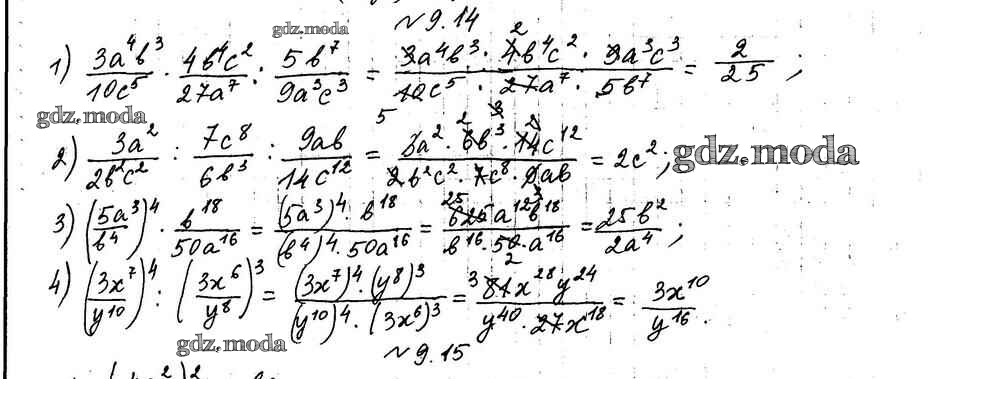 № 9.14
gdz.moda
1) \frac{3a^4b^3}{10c^5} · \frac{4b^4c^2}{27a^7} : \frac{5b^7}{9a^3c^3} = \frac{3a^4b^3 · 4b^4c^2 · 9a^3c^3}{10c^5 · 27a^7 · 5b^7} = \frac{2}{25};
gdz.moda
2) \frac{3a^2}{2b^2c^2} : \frac{7c^8}{6b^3} : \frac{9ab}{14c^{12}} = \frac{3a^2 · 6b^3 · 14c^{12}}{2b^2c^2 · 7c^8 · 9ab} = 2c^2;
gdz.moda
3) (\frac{5a^3}{b^4})^4 · \frac{b^{18}}{50a^{16}} = \frac{(5a^3)^4 · b^{18}}{(b^4)^4 · 50a^{16}} = \frac{625a^{12}b^{18}}{b^{16} · 50 · a^{16}} = \frac{25b^2}{2a^4};
4) (\frac{3x^7}{y^{10}})^4 : (\frac{3x^6}{y^8})^3 = \frac{(3x^7)^4 · (y^8)^3}{(y^{10})^4 · (3x^6)^3} = \frac{81x^{28}y^{24}}{y^{40} · 27x^{18}} = \frac{3x^{10}}{y^{16}}.
gdz.moda
№ 9.15